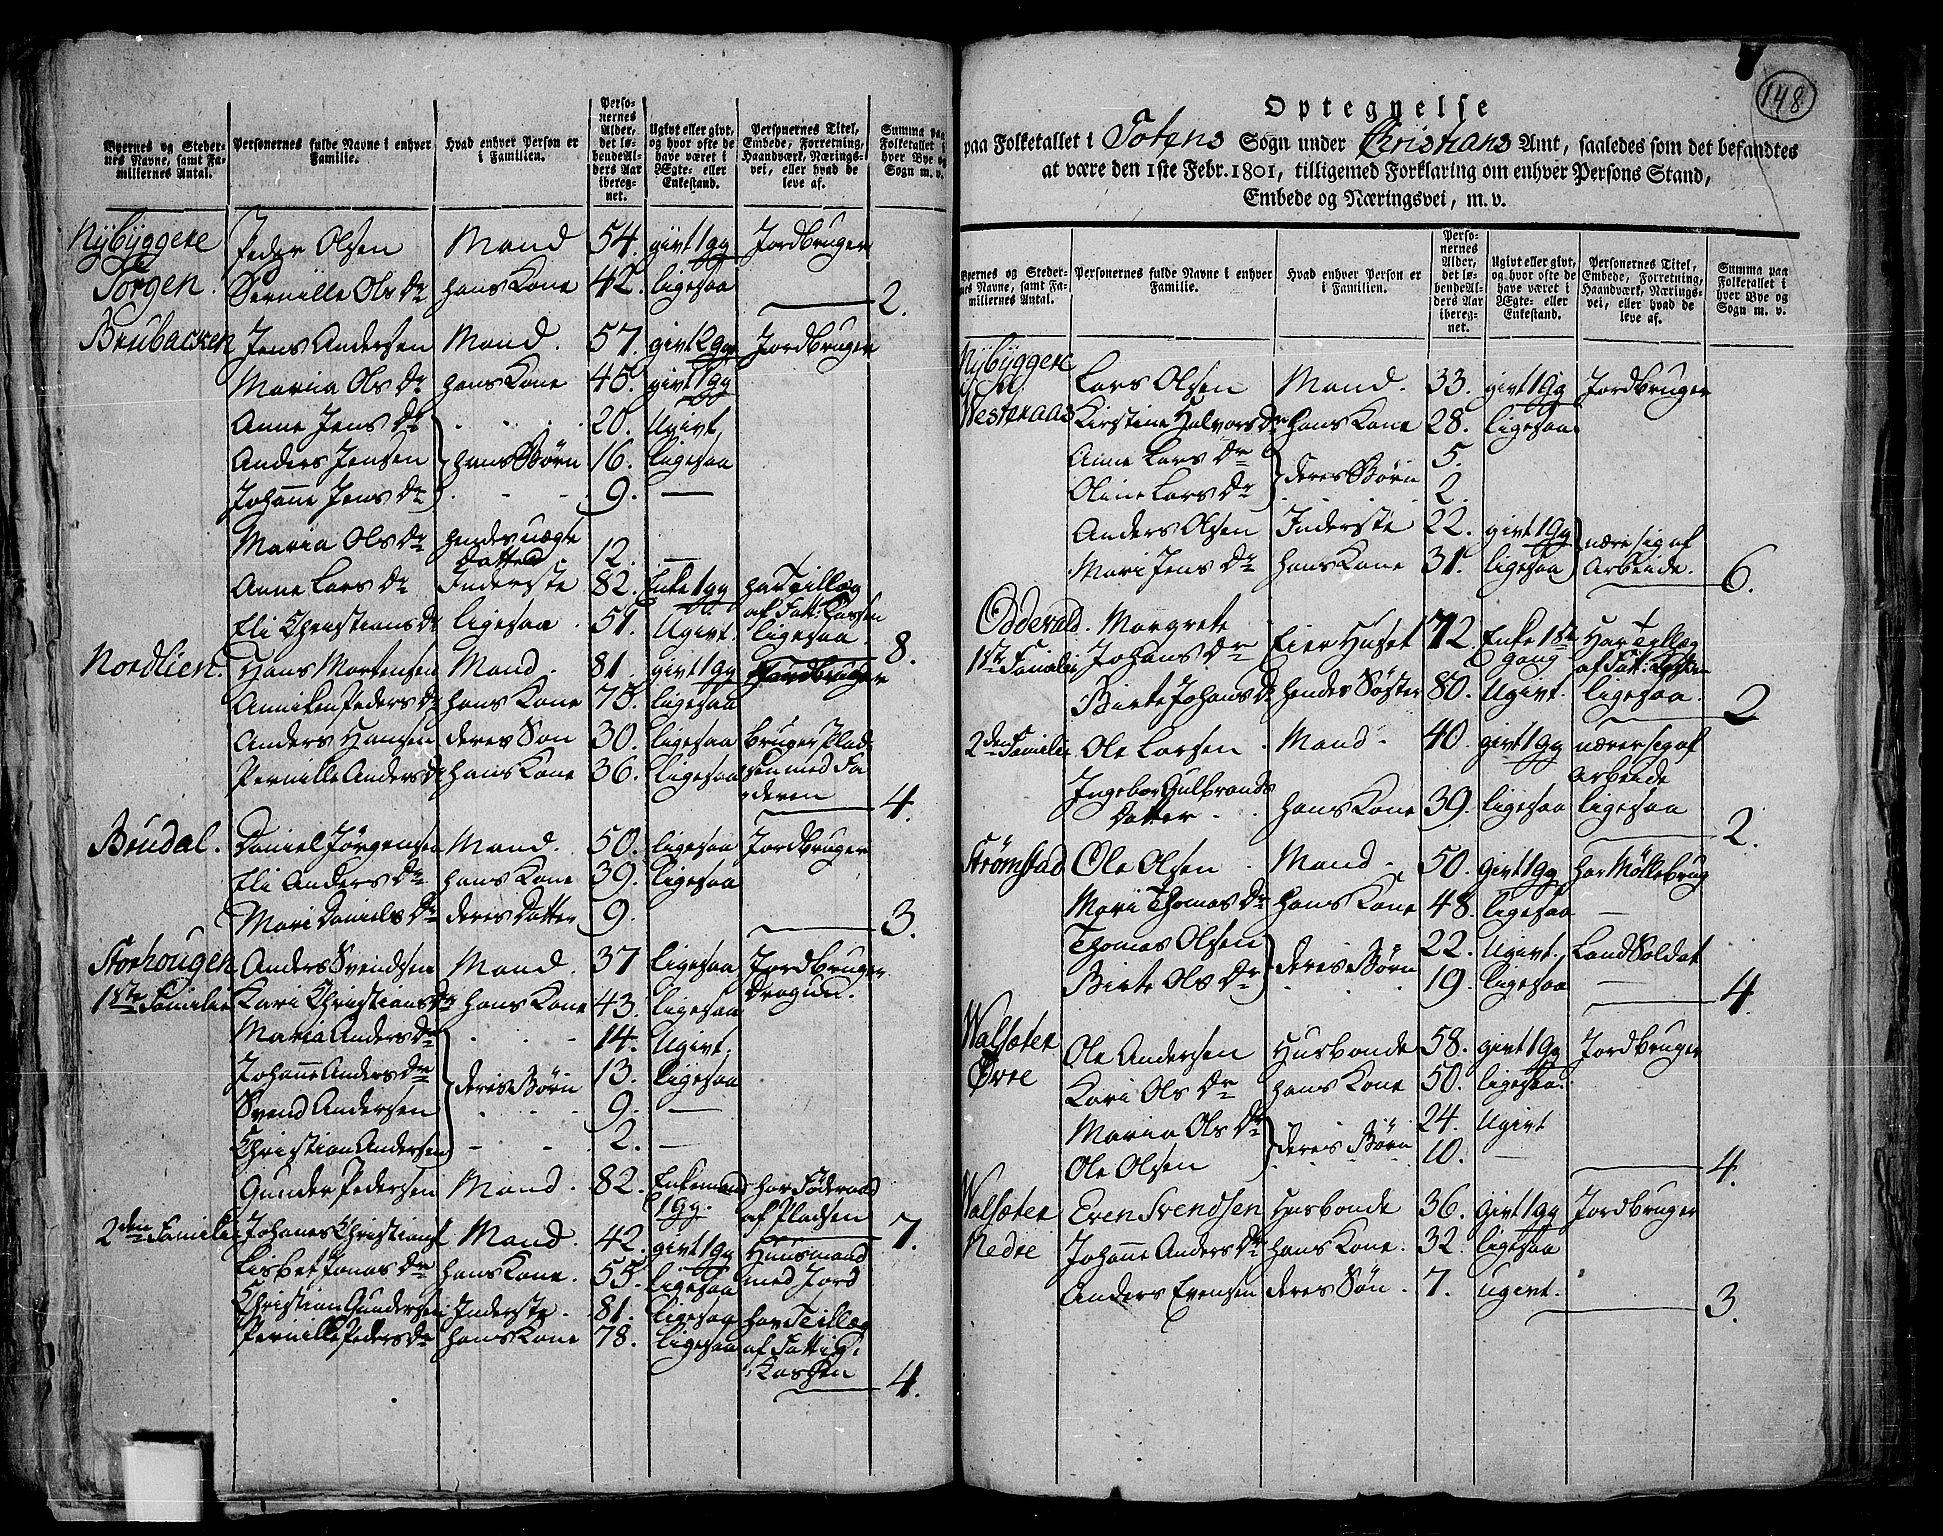 Byernes og Stedernes Navne, samt Familiernes Antal. | Personernes fulde Navne i enhver Familie. | Hvad enhver Person er i Familien. | Personernes Alder, det løbende Alders Aar iberegnet. | Ugivt eller givt, og hvor ofte de have været i Ægte- eller Enkestand. | Personernes Titel, Embede, Forretning, Haandværk, Næringsvei, eller hvad de leve af. | Summa paa Folketallet i hver Bye og Sogn m. v.
Nÿbÿggere
Peder Olsen | Mand | 54. | givt 1 Gg | Jordbruger
Torgen. | Pernille Ols Dr | hans Kone | 42. | ligesaa | 2.
Brubacken | Jens Andersen | Mand. | 57. | givt 2 Gg | Jordbruger
Maria Ols Dr | hans Kone | 45. | givt 1 Gg
Anne Jens Dr | 20. | Ugivt
Anders Jensen | hans Børn | 16. | ligesaa
Johanne Jens Dr | 9. | —
Maria Ols Dr | hendes uægte
Datter | 12. | —
Anne Lars Dr | Inderste | 82. | Enke 1 Gg | har Tillæg
af Fatt: Kassen
Eli Christians Dr | ligesaa | 51. | Ugivt. | ligesaa | 8.
Nordlien. | Hans Mortensen | Mand. | 81. | givt 1 Gg | Jordbruger
Anniken Peders Dr | hans Kone | 75. | ligesaa
Anders Hansen | deres Søn | 30. | ligesaa | bruger Plad-
Pernille Anders Dr | hans Kone | 36. | ligesaa | sen med Fa
deren | 4.
Brudal. | Daniel Jørgensen | Mand. | 50. | ligesaa | Jordbruger
Eli Anders Dr | hans Kone | 39. | ligesaa
Mari Daniels Dr | deres Datter | 9. | 3.
Storhougen | Anders Svendsen | Mand. | 37 | ligesaa | Jordbruger
Dragun.
1ste Familie | Kari Christians Dr | hans Kone | 43. | ligesaa
Maria Anders Dr | 14. | Ugivt.
Johanne Anders Dr | deres Børn | 13. | ligesaa
Svend Andersen | 9. | —
Christian Andersen | 2. | —
Gunder Pedersen | Mand. | 82. | Enkemand
1 Gg. | har Føderaad
af Pladsen | 7.
2den Familie | Johanes Christians | Mand. | 42. | givt 1 Gg | Huusmand
Lisbet Jonas Dr | hans Kone. | 55. | ligesaa | med Jord
Christian Gundersen | Inderste. | 81. | ligesaa | har Tillæg
Pernille Peders Dr | hans Kone | 78. | ligesaa | af Fattig-
Kassen | 4.
148
Optegnelse
paa Folketallet i Totens Sogn under Christians Amt, saaledes som det befandtes
at være den 1ste Febr. 1801, tilligemed Forklaring om enhver Persons Stand,
Embede og Næringsvei, m. v.
Byernes og Stedernes Navne, samt Familiernes Antal. | Personernes fulde Navne i enhver Familie. | Hvad enhver Person er i Familien. | Personernes Alder, det løbende Alders Aar iberegnet. | Ugivt eller givt, og hvor ofte de have været i Ægte- eller Enkestand. | Personernes Titel, Embede, Forretning, Haandværk, Næringsvei, eller hvad de leve af. | Summa paa Folketallet i hver Bye og Sogn m. v.
Nÿbÿggere
Lars Olsen | Mand. | 33. | givt 1 Gg | Jordbruger
Westeraas | Kirstine Halvors Dr | hans Kone | 28. | ligesaa
Anne Lars Dr | deres Børn | 5.
Oline Lars Dr | 2.
Anders Olsen | Inderste | 22. | givt 1 Gg | nære sig af
Mari Jens Dr | hans Kone | 31. | ligesaa | Arbeide. | 6.
Odderald. | Margrete
1ste Familie | Johans Dr | Eier Huset | 72. | Enke 1ste
Gang | Har Tillæg
af Fatt: Kassen
Birte Johans Dr | hendes Søster | 80. | Ugivt. | ligesaa. | 2
2den Familie | Ole Larsen | Mand. | 40. | givt 1 Gg | nærer sig af
Arbeide
Ingebor Gulbrands
Datter | hans Kone | 39. | ligesaa | ligesaa | 2.
Strømstad | Ole Olsen | Mand. | 50. | givt 1 Gg | har Møllebrug
Mari Thomas Dr | hans Kone | 48. | ligesaa | —
Thomas Olsen | deres Børn | 22. | Ugivt. | Land Soldat
Birte Ols Dr | 19. | ligesaa | — | 4.
Walsæter
Øvre | Ole Andersen | Husbonde | 58. | givt 1 Gg | Jordbruger
Kari Ols Dr | hans Kone | 50. | ligesaa
Maria Ols Dr | deres Børn | 24. | Ugivt
Ole Olsen | 10. | — | 4.
Walsæter | Even Svendsen | Husbonde | 36. | givt 1 Gg | Jordbruger
Nedre | Johanne Anders Dr | hans Kone. | 32. | ligesaa
Anders Evensen | deres Søn. | 7. | Ugivt. | 3.